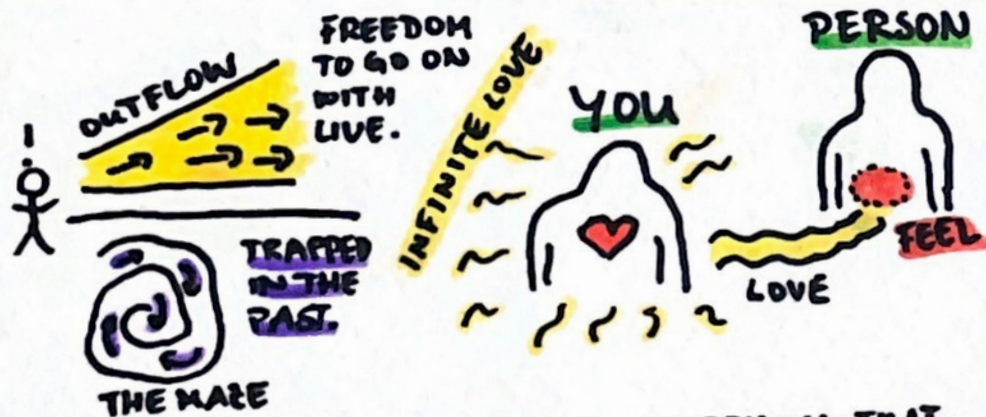 OUTFLOW
FREEDOM
TO GO ON
WITH
LIVE.
TRAPPED
IN THE
PAST.
THE MAZE
INFINITE LOVE
YOU
PERSON
LOVE
FEEL
THAT